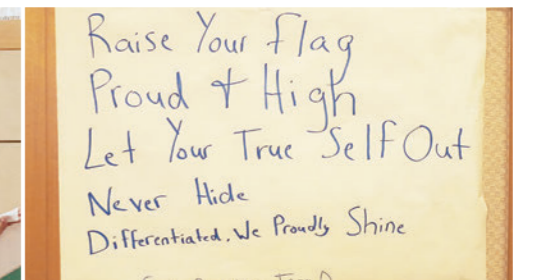 Raise Your flag
Proud & High
Let Your True Self Out
Never Hide
Differentiated. We Proudly Shine